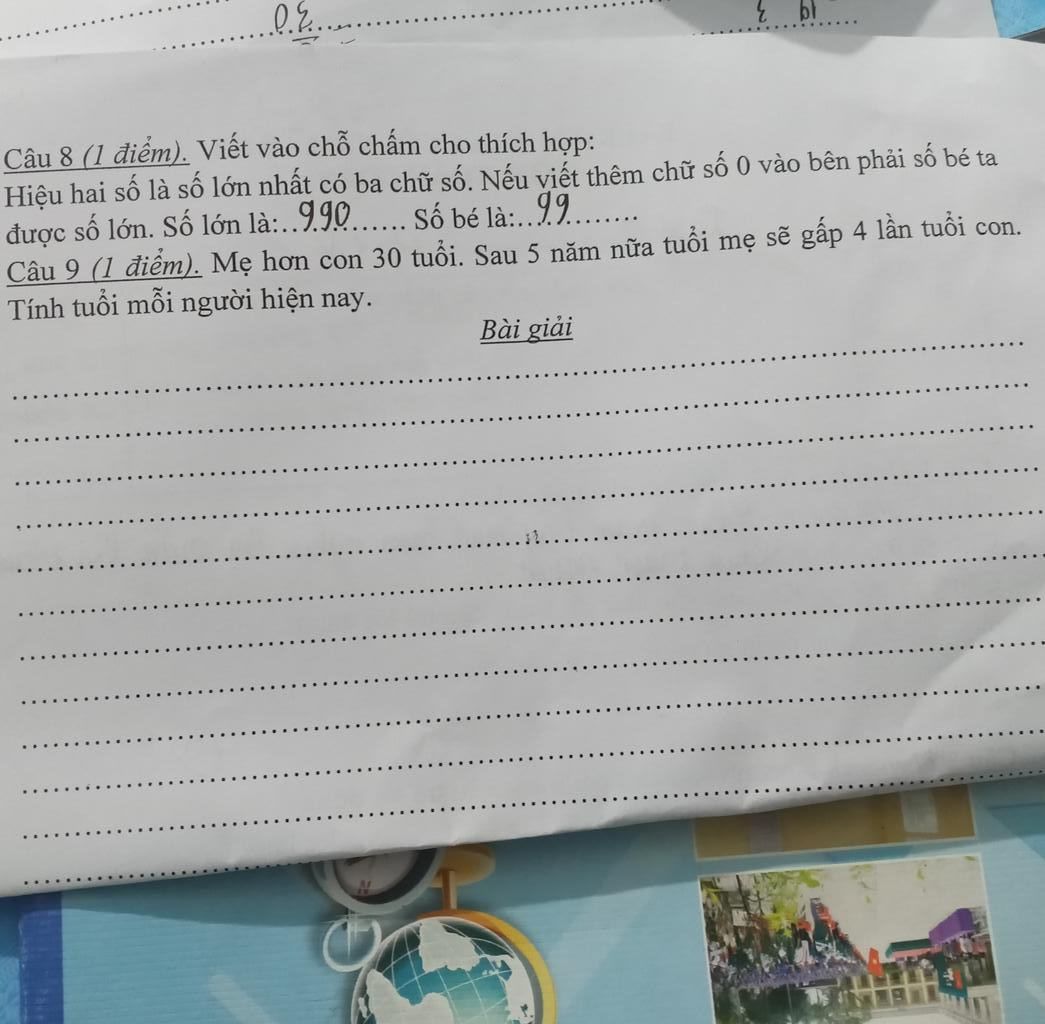 0.2
Câu 8 (1 điểm). Viết vào chỗ chấm cho thích hợp:
Hiệu hai số là số lớn nhất có ba chữ số. Nếu viết thêm chữ số 0 vào bên phải số bé ta
được số lớn. Số lớn là:..990...... Số bé là:..99.......
Câu 9 (1 điểm). Mẹ hơn con 30 tuổi. Sau 5 năm nữa tuổi mẹ sẽ gấp 4 lần tuổi con.
Tính tuổi mỗi người hiện nay.
Bài giải
N